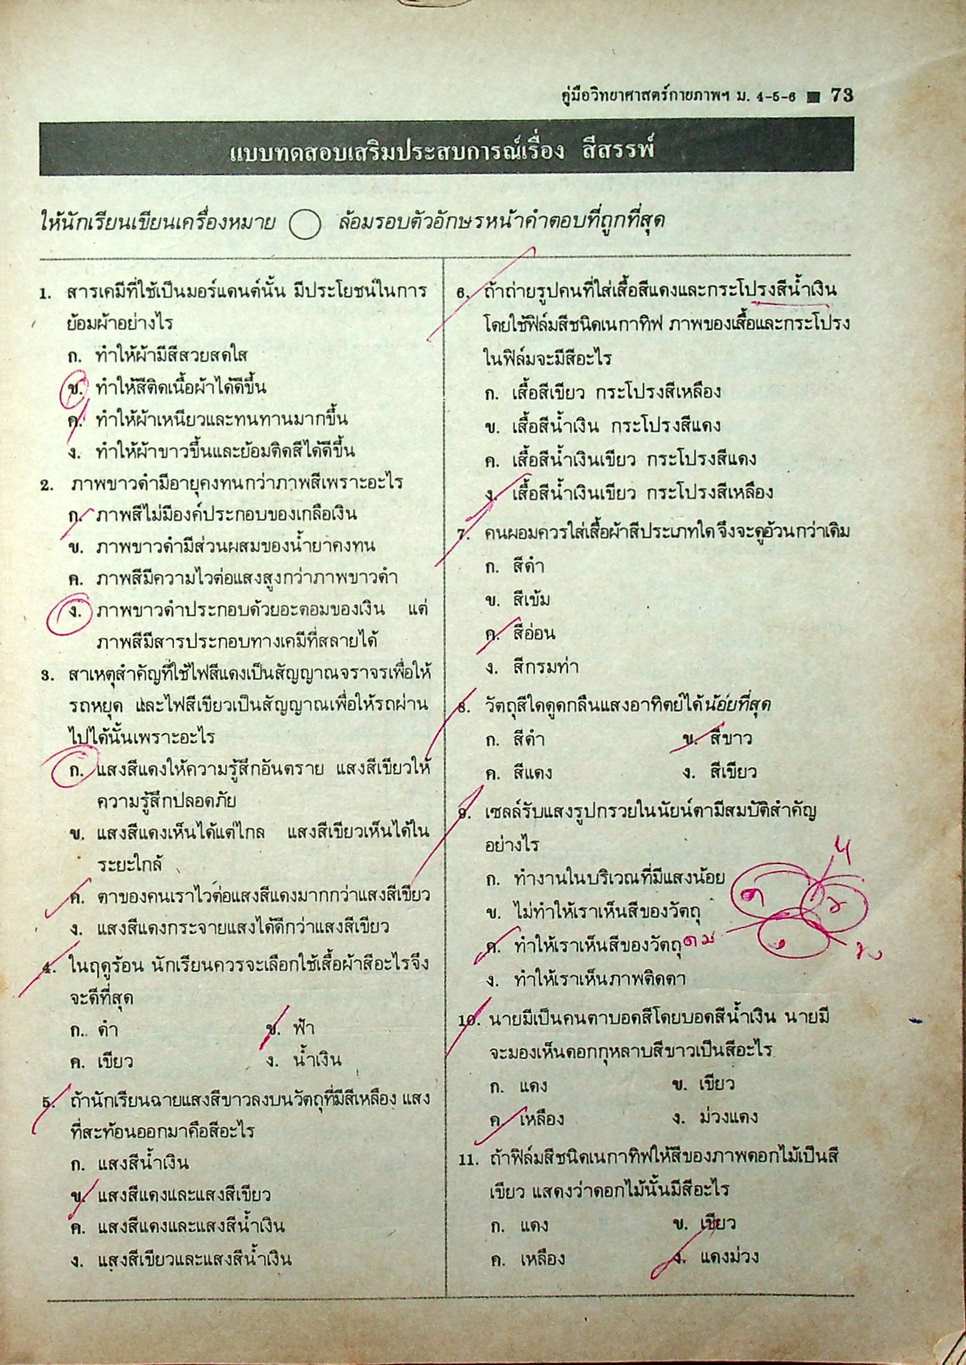 คู่มือวิทยาศาสตร์กายภาพฯ ม. 4-5-6 ■ 73
แบบทดสอบเสริมประสบการณ์เรื่อง สีสรรพ์
ให้นักเรียนเขียนเครื่องหมาย ◯ ล้อมรอบตัวอักษรหน้าคำตอบที่ถูกที่สุด
1. สารเคมีที่ใช้เป็นมอร์แดนต์นั้น มีประโยชน์ในการ
ย้อมผ้าอย่างไร
ก. ทำให้ผ้ามีสีสวยสดใส
ข. ทำให้สีติดเนื้อผ้าได้ดีขึ้น
ค. ทำให้ผ้าเหนียวและทนทานมากขึ้น
ง. ทำให้ผ้าขาวขึ้นและย้อมติดสีได้ดีขึ้น
2. ภาพขาวดำมีอายุคงทนกว่าภาพสีเพราะอะไร
ก. ภาพสีไม่มีองค์ประกอบของเกลือเงิน
ข. ภาพขาวดำมีส่วนผสมของน้ำยาคงทน
ค. ภาพสีมีความไวต่อแสงสูงกว่าภาพขาวดำ
ง. ภาพขาวดำประกอบด้วยอะตอมของเงิน แต่
ภาพสีมีสารประกอบทางเคมีที่สลายได้
3. สาเหตุสำคัญที่ใช้ไฟสีแดงเป็นสัญญาณจราจรเพื่อให้
รถหยุด และไฟสีเขียวเป็นสัญญาณเพื่อให้รถผ่าน
ไปได้นั้นเพราะอะไร
ก. แสงสีแดงให้ความรู้สึกอันตราย แสงสีเขียวให้
ความรู้สึกปลอดภัย
ข. แสงสีแดงเห็นได้แต่ไกล แสงสีเขียวเห็นได้ใน
ระยะใกล้
ค. ตาของคนเราไวต่อแสงสีแดงมากกว่าแสงสีเขียว
ง. แสงสีแดงกระจายแสงได้ดีกว่าแสงสีเขียว
4. ในฤดูร้อน นักเรียนควรจะเลือกใช้เสื้อผ้าสีอะไรจึง
จะดีที่สุด
ก. ดำ ข. ฟ้า
ค. เขียว ง. น้ำเงิน
5. ถ้านักเรียนฉายแสงสีขาวลงบนวัตถุที่มีสีเหลือง แสง
ที่สะท้อนออกมาคือสีอะไร
ก. แสงสีน้ำเงิน
ข. แสงสีแดงและแสงสีเขียว
ค. แสงสีแดงและแสงสีน้ำเงิน
ง. แสงสีเขียวและแสงสีน้ำเงิน
6. ถ้าถ่ายรูปคนที่ใส่เสื้อสีแดงและกระโปรงสีน้ำเงิน
โดยใช้ฟิล์มสีชนิดเนกาทิฟ ภาพของเสื้อและกระโปรง
ในฟิล์มจะมีสีอะไร
ก. เสื้อสีเขียว กระโปรงสีเหลือง
ข. เสื้อสีน้ำเงิน กระโปรงสีแดง
ค. เสื้อสีน้ำเงินเขียว กระโปรงสีแดง
ง. เสื้อสีน้ำเงินเขียว กระโปรงสีเหลือง
7. คนผอมควรใส่เสื้อผ้าสีประเภทใดจึงจะดูอ้วนกว่าเดิม
ก. สีดำ
ข. สีเข้ม
ค. สีอ่อน
ง. สีกรมท่า
8. วัตถุสีใดดูดกลืนแสงอาทิตย์ได้น้อยที่สุด
ก. สีดำ ข. สีขาว
ค. สีแดง ง. สีเขียว
9. เซลล์รับแสงรูปกรวยในนัยน์ตามีสมบัติสำคัญ
อย่างไร
ก. ทำงานในบริเวณที่มีแสงน้อย
ข. ไม่ทำให้เราเห็นสีของวัตถุ
ค. ทำให้เราเห็นสีของวัตถุ
ง. ทำให้เราเห็นภาพติดตา
10. นายมีเป็นคนตาบอดสีโดยบอดสีน้ำเงิน นายมี
จะมองเห็นดอกกุหลาบสีขาวเป็นสีอะไร
ก. แดง ข. เขียว
ค. เหลือง ง. ม่วงแดง
11. ถ้าฟิล์มสีชนิดเนกาทิฟให้สีของภาพดอกไม้เป็นสี
เขียว แสดงว่าดอกไม้นั้นมีสีอะไร
ก. แดง ข. เขียว
ค. เหลือง ง. แดงม่วง